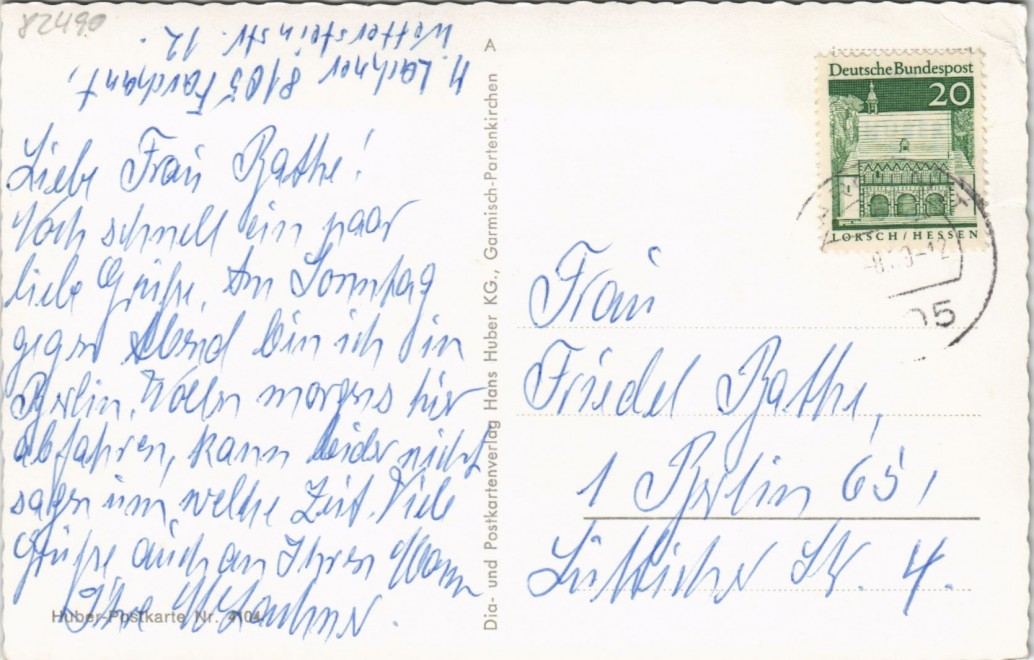 82490
M. Lachner 8105 Farchant,
Wettersteinstr. 12.
Liebe Frau Rathe!
Noch schnell ein paar
liebe Grüße. Am Sonntag
gegen Abend bin ich in
Berlin. Wollen morgens hier
abfahren, kann leider nicht
sagen um welche Zeit. Viele
Grüße auch an Ihren Mann
Ihre M. Lachner.
Huber-Postkarte Nr. 4104
A
Dia- und Postkartenverlag Hans Huber KG., Garmisch-Partenkirchen
Deutsche Bundespost
20
LORSCH/HESSEN
Frau
Friedel Rathe,
1 Berlin 65,
Lütticher Str. 4.